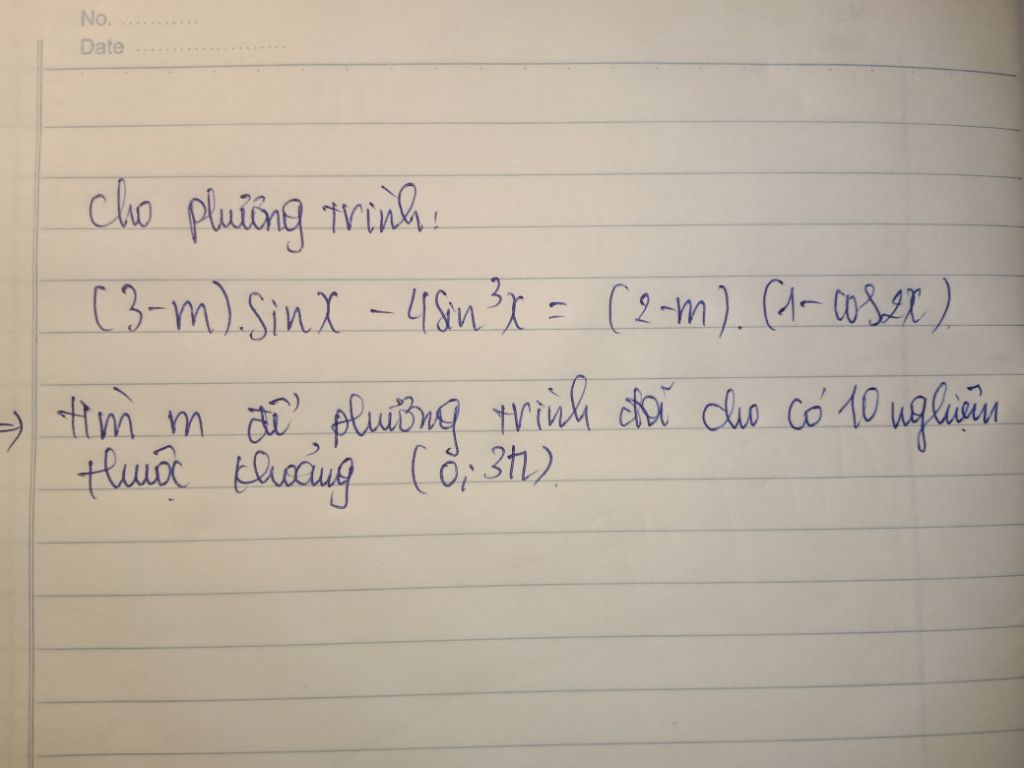 No. ...........
Date ......................
Cho phương trình:
(3-m).sinx - 4sin³x = (2-m).(1-cos2x).
=> tìm m để phương trình đã cho có 10 nghiệm
thuộc khoảng (0; 3π).